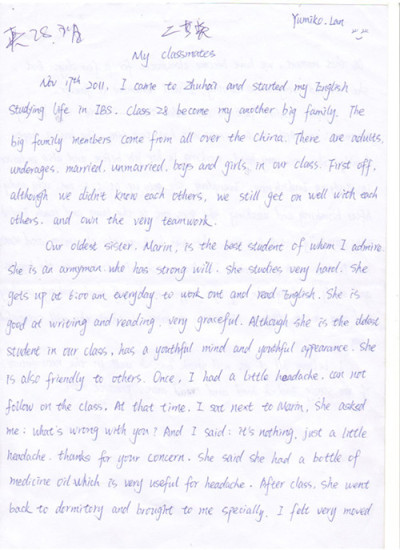 Yumiko.Lan
英28.
My classmates
Nov 17th 2011, I came to Zhuhai and started my English
studying life in IBS. Class 28 become my another big family. The
big family members come from all over the China. There are adults,
underages, married, unmarried, boys and girls in our class. First off,
although we didn't knew each others, we still get on well with each
others. and own the very teamwork.
Our oldest sister. Marin, is the best student of whom I admire.
She is an armyman. who has strong will. She studies very hard. She
gets up at 6:00 am everyday to work out and read English. She is
good at writing and reading. very graceful. Although she is the oldest
student in our class, has a youthful mind and youthful appearance. She
is also friendly to others. Once, I had a little headache. can not
follow on the class. At that time. I sat next to Marin, She asked
me: What's wrong with you? And I said: it's nothing, just a little
headache. thanks for your concern. She said she had a bottle of
medicine oil which is very useful for headache. After class, she went
back to dormitory and brought to me specially. I felt very moved